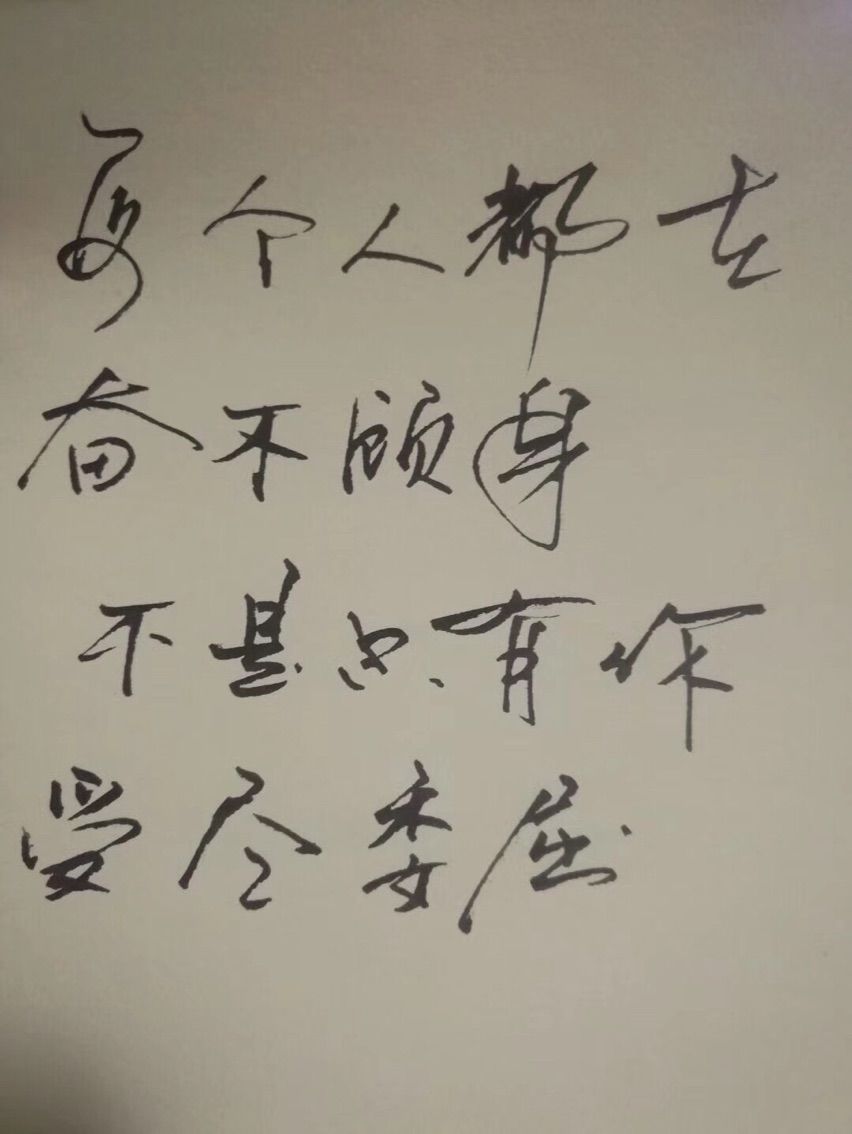 每个人都在
奋不顾身
不是只有你
受尽委屈